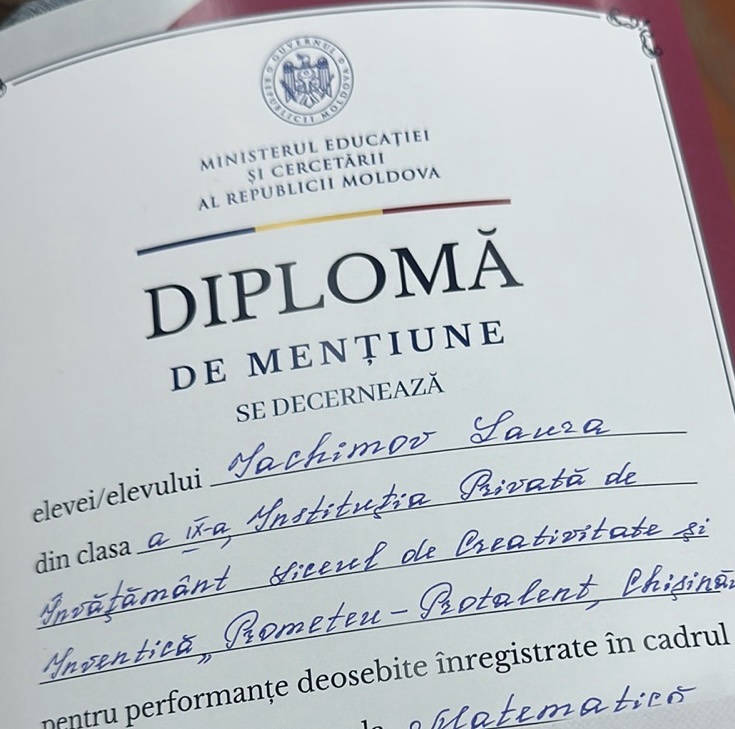 GUVERNUL REPUBLICII MOLDOVA
MINISTERUL EDUCAȚIEI
ȘI CERCETĂRII
AL REPUBLICII MOLDOVA
DIPLOMĂ
DE MENȚIUNE
SE DECERNEAZĂ
elevei/elevului Iachimov Laura
din clasa a IX-a, Instituția Privată de
Învățământ Liceul de Creativitate și
Inventică „Prometeu - Protalent, Chișinău
pentru performanțe deosebite înregistrate în cadrul
Matematică